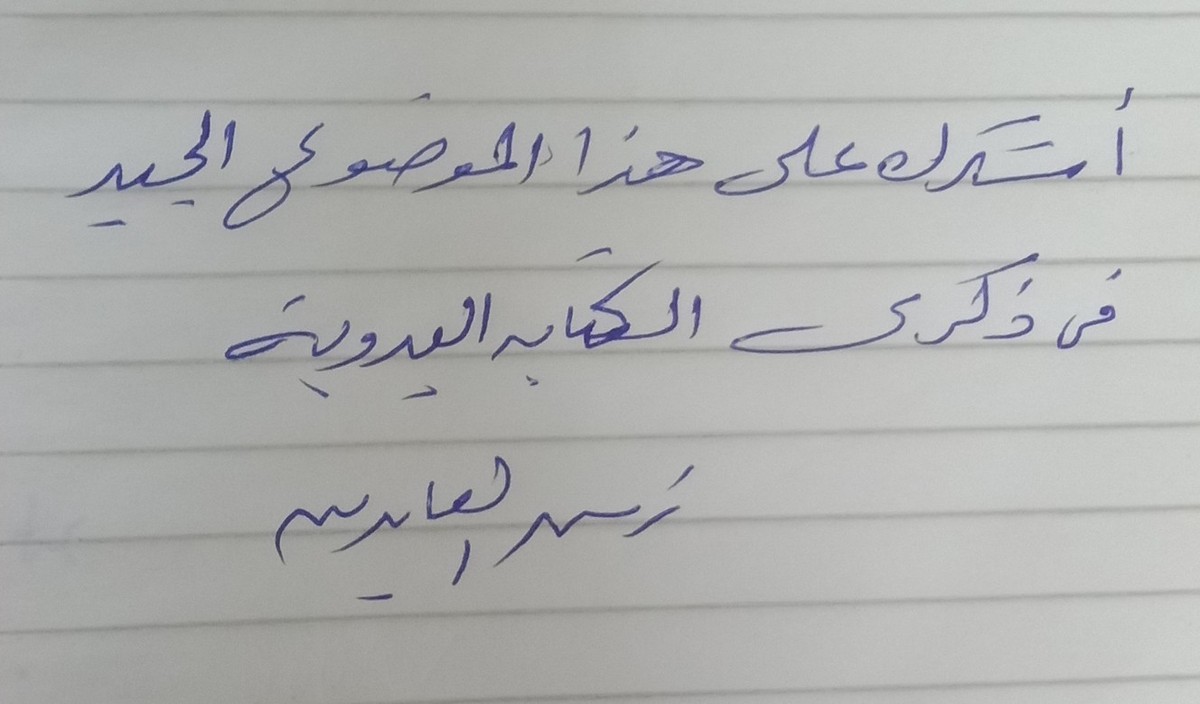 أشكرك على هذا الموضوع الجيد
فى ذكرى الكتابه اليدوية
زين العابدين